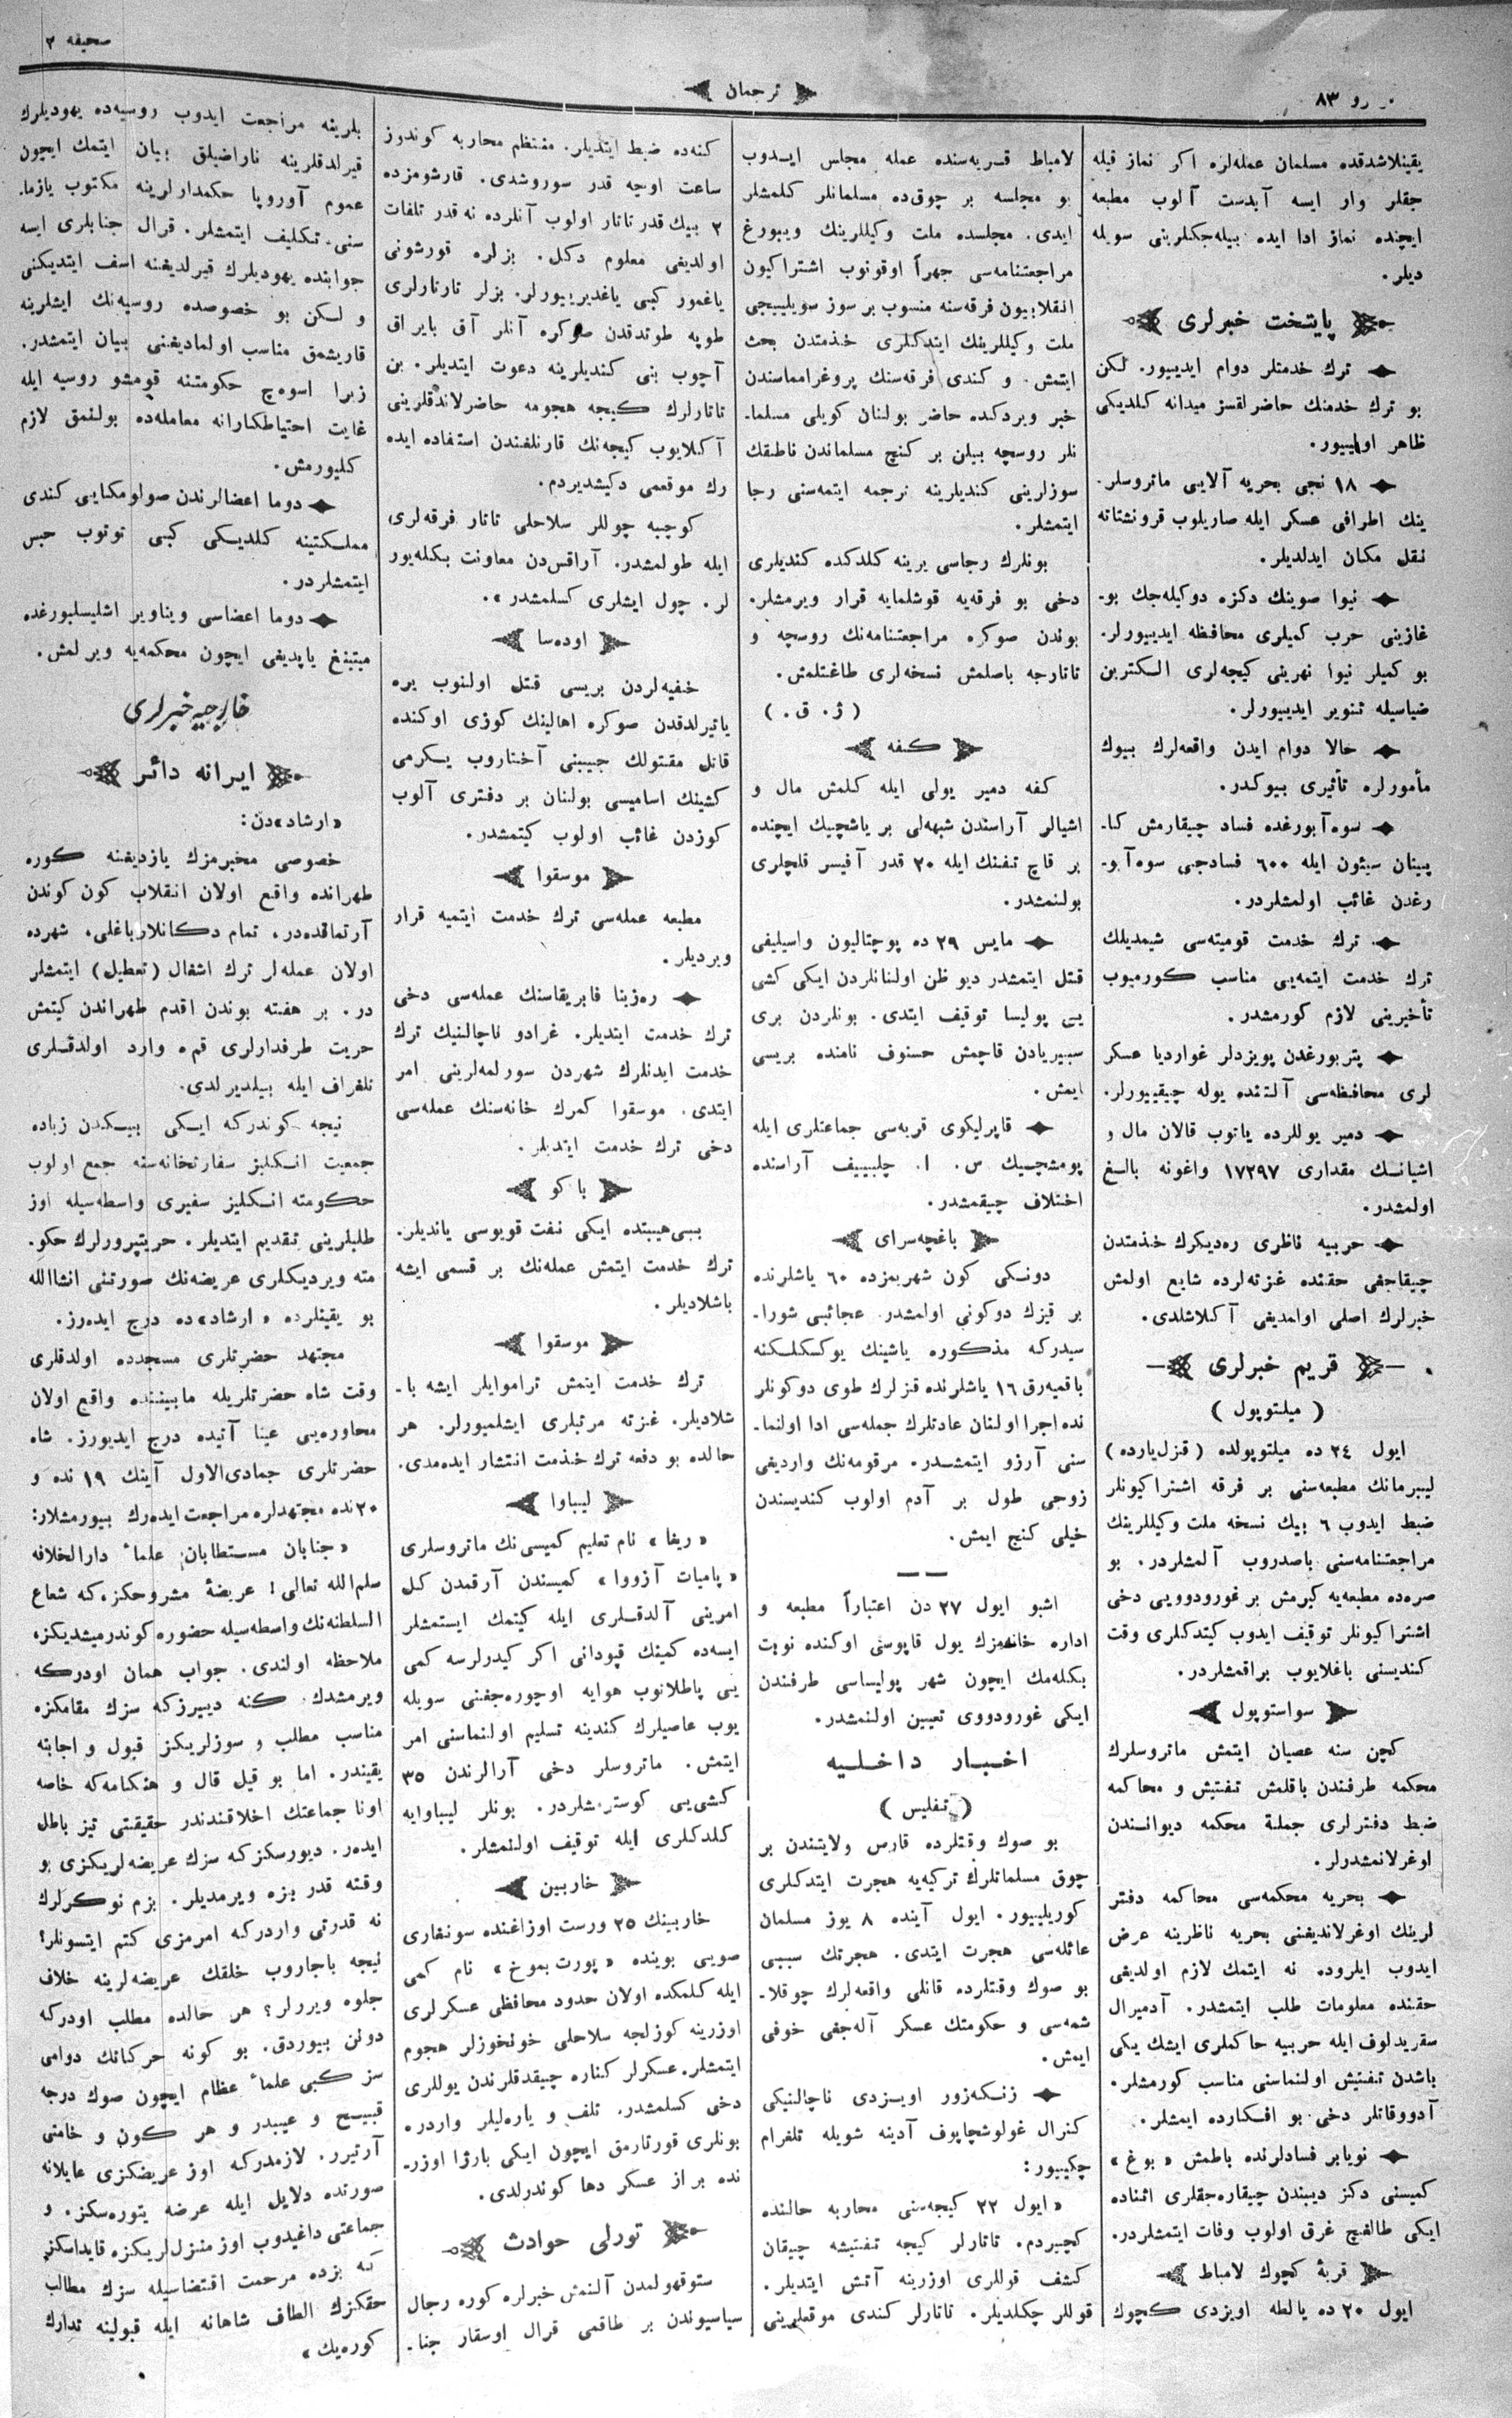 صحیفه ٢
ترجمان
رو ٨٣
یقینلاشدقده مسلمان عمله‌لره اکر نماز قیله
جقلر وار ایسه آبدست آلوب مطبعه
ایچنده نماز ادا ایده بیله‌جکلرینی سویله
دیلر.
پایتخت خبرلری
ترك خدمتلر دوام ایدییور. لکن
بو ترك خدمتك حاضرلقسز میدانه کلدیکی
ظاهر اولییور.
١٨ نجی بحریه آلایی ماتروسلر-
ینك اطرافی عسکر ایله صاریلوب قرونشتاته
نقل مکان ایدلدیلر.
نیوا صوینك دکزه دوکیله‌جك بو-
غازینی حرب کمیلری محافظه ایدییورلر.
بو کمیلر نیوا نهرینی کیجه‌لری الکترین
ضیاسیله تنویر ایدییورلر.
حالا دوام ایدن واقعه‌لرك بیوك
مأمورلره تأثیری بیوکدر.
سوه‌آبورغده فساد چیقارمش کا-
پیتان سیئون ایله ٦٠٠ فسادجی سوه‌آبو-
رغدن غائب اولمشلردر.
ترك خدمت قومیته‌سی شیمدیلك
ترك خدمت ایتمه‌یی مناسب کورمیوب
تأخیرینی لازم کورمشدر.
پتربورغدن پویزدلر غواردیا عسکر
لری محافظه‌سی آلتنده یوله چیقییورلر.
دمیر یوللرده یاتوب قالان مال و
اشیانك مقداری ١٧٢٩٧ واغونه بالغ
اولمشدر.
حربیه ناظری ره‌دیکرك خدمتدن
چیقاجغی حقنده غزته‌لرده شایع اولمش
خبرلرك اصلی اولمدیغی آکلاشلدی.
قریم خبرلری
( میلتوپول )
ایول ٢٤ ده میلتوپولده ( قزل‌یارده )
لیبرمانك مطبعه‌سنی بر فرقه اشتراکیونلر
ضبط ایدوب ٦ بیك نسخه ملت وکیللرینك
مراجعتنامه‌سنی باصدروب آلمشلردر. بو
صره‌ده مطبعه‌یه کیرمش بر غورودوویی دخی
اشتراکیونلر توقیف ایدوب کیتدکلری وقت
کندیسنی باغلایوب براقمشلردر.
سواستوپول
کچن سنه عصیان ایتمش ماتروسلرك
محکمه طرفندن باقلمش تفتیش و محاکمه
ضبط دفترلری جملهٔ محکمه دیوانندن
اوغرلانمشدرلر.
بحریه محکمه‌سی محاکمه دفتر
لرینك اوغرلاندیغنی بحریه ناظرینه عرض
ایدوب ایلروده نه ایتمك لازم اولدیغی
حقنده معلومات طلب ایتمشدر. آدمیرال
سقریدلوف ایله حربیه حاکملری ایشك یکی
باشدن تفتیش اولنماسنی مناسب کورمشلر.
آدووقاتلر دخی بو افکارده ایمشلر.
نویابر فسادلرنده باطمش «بوغ»
کمیسنی دکز دیبندن چیقاره‌جقلری اثناده
ایکی طالغیچ غرق اولوب وفات ایتمشلردر.
قریهٔ کچوك لامباط
ایول ٢٠ ده یالطه اویزدی کچوك
لامباط قریه‌سنده عمله مجلس ایدوب
بو مجلسه بر چوق‌ده مسلمانلر کلمشلر
ایدی. مجلسده ملت وکیللرینك ویبورغ
مراجعتنامه‌سی جهراً اوقونوب اشتراکیون
انقلابیون فرقه‌سنه منسوب بر سوز سویلییجی
ملت وکیللرینك ایتدکلری خدمتدن بحث
ایتمش و کندی فرقه‌سنك پروغرامماسندن
خبر ویردکده حاضر بولنان کویلی مسلما-
نلر روسچه بیلن بر کنج مسلماندن ناطقك
سوزلرینی کندیلرینه ترجمه ایتمه‌سنی رجا
ایتمشلر.
بونلرك رجاسی یرینه کلدکده کندیلری
دخی بو فرقه‌یه قوشلمایه قرار ویرمشلر.
بوندن صوکره مراجعتنامه‌نك روسچه و
تاتارجه باصلمش نسخه‌لری طاغتلمش.
( ژ. ق. )
کفه
کفه دمیر یولی ایله کلمش مال و
اشیالر آراسندن شبهه‌لی بر یاشچیك ایچنده
بر قاچ تفنك ایله ٢٠ قدر آفیسر قلچلری
بولنمشدر.
مایس ٢٩ ده پوچتالیون واسیلیفی
قتل ایتمشدر دیو ظن اولنانلردن ایکی کشی
یی پولیسا توقیف ایتدی. بونلردن بری
سیبریادن قاچمش حسنوف نامنده بریسی
ایمش.
قاپرلیکوی قریه‌سی جماعتلری ایله
پومشچیك س. ا. چلبییف آراسنده
اختلاف چیقمشدر.
باغچه‌سرای
دونکی کون شهریمزده ٦٠ یاشلرنده
بر قیزك دوکونی اولمشدر. عجائبی شورا-
سیدرکه مذکوره یاشینك یوکسکلکنه
باقمیه‌رق ١٦ یاشلرنده قزلرك طوی دوکونلر
نده اجرا اولنان عادتلرك جمله‌سی ادا اولنما-
سنی آرزو ایتمشدر. مرقومه‌نك واردیغی
زوجی طول بر آدم اولوب کندیسندن
خیلی کنج ایمش.
اشبو ایول ٢٧ دن اعتباراً مطبعه و
اداره خانه‌مزك یول قاپوسی اوکنده نوبت
بکله‌مك ایچون شهر پولیساسی طرفندن
ایکی غورودووی تعیین اولنمشدر.
اخبار داخلیه
( تفلیس )
بو صوك وقتلرده قارص ولایتندن بر
چوق مسلمانلرك ترکیه‌یه هجرت ایتدکلری
کوریلییور. ایول آینده ٨ یوز مسلمان
عائله‌سی هجرت ایتدی. هجرتك سببی
بو صوك وقتلرده قانلی واقعه‌لرك چوقلا-
شمه‌سی و حکومتك عسکر آله‌جغی خوفی
ایمش.
زنکه‌زور اویزدی ناچالنیکی
کنرال غولوشچاپوف آدینه شویله تلغرام
چکییور:
« ایول ٢٢ کیجه‌سنی محاربه حالنده
کچیردم. تاتارلر کیجه تفتیشه چیقان
کشف قوللری اوزرینه آتش ایتدیلر.
قوللر چکلدیلر. تاتارلر کندی موقعلرینی
کنه‌ده ضبط ایتدیلر. منتظم محاربه کوندوز
ساعت اوچه قدر سوروشدی. قارشومزده
٢ بیك قدر تاتار اولوب آنلرده نه قدر تلفات
اولدیغی معلوم دکل. بزلره قورشونی
یاغمور کبی یاغدیرییورلر. بزلر تارتارلری
طوپه طوتدقدن صوکره آنلر آق بایراق
آچوب بنی کندیلرینه دعوت ایتدیلر. بن
تاتارلرك کیجه هجومه حاضرلاندقلرینی
آکلایوب کیجه‌نك قارنلغندن استفاده ایده
رك موقعمی دکیشدیردم.
کوچبه چوللر سلاحلی تاتار فرقه‌لری
ایله طولمشدر. آراقس‌دن معاونت بکله‌یور
لر. چول ایشلری کسلمشدر».
اوده‌سا
خفیه‌لردن بریسی قتل اولنوب یره
یاتیرلدقدن صوکره اهالینك کوزی اوکنده
قاتل مقتولك جیبینی آختاروب یکرمی
کشینك اسامیسی بولنان بر دفتری آلوب
کوزدن غائب اولوب کیتمشدر.
موسقوا
مطبعه عمله‌سی ترك خدمت ایتمیه قرار
ویردیلر.
ره‌زینا فابریقاسنك عمله‌سی دخی
ترك خدمت ایتدیلر. غرادو ناچالنیك ترك
خدمت ایدنلرك شهردن سورلمه‌لرینی امر
ایتدی. موسقوا کمرك خانه‌سنك عمله‌سی
دخی ترك خدمت ایتدیلر.
باکو
بیبی‌هیبتده ایکی نفت قویوسی یاندیلر.
ترك خدمت ایتمش عمله‌نك بر قسمی ایشه
باشلادیلر.
موسقوا
ترك خدمت ایتمش تراموایلر ایشه با-
شلادیلر. غزته مرتبلری ایشلمیورلر. هر
حالده بو دفعه ترك خدمت انتشار ایده‌مدی.
لیباوا
« ریغا » نام تعلیم کمیسی‌نك ماتروسلری
« پامیات آزووا » کمیسندن آرقمدن کل
امرینی آلدقلری ایله کیتمك ایستمشلر
ایسه‌ده کمینك قپودانی اکر کیدرلرسه کمی
یی پاطلانوب هوایه اوچوره‌جغنی سویله
یوب عاصیلرك کندینه تسلیم اولنماسنی امر
ایتمش. ماتروسلر دخی آرالرندن ٣٥
کشی‌یی کوسترمشلردر. بونلر لیباوایه
کلدکلری ایله توقیف اولنمشلر.
خاربین
خاربینك ٢٥ ورست اوزاغنده سونغاری
صویی بوینده « پورت بموخ » نام کمی
ایله کلمکده اولان حدود محافظی عسکرلری
اوزرینه کوزلجه سلاحلی خونخوزلر هجوم
ایتمشلر. عسکرلر کناره چیقدقلرندن یوللری
دخی کسلمشدر. تلف و یاره‌لیلر واردر.
بونلری قورتارمق ایچون ایکی بارژا اوزر-
نده بر از عسکر دها کوندرلدی.
تورلی حوادث
ستوقهولمدن آلنمش خبرلره کوره رجال
سیاسیوندن بر طاقمی قرال اوسقار جنا-
بلرینه مراجعت ایدوب روسیه‌ده یهودیلرك
قیرلدقلرینه ناراضیلق بیان ایتمك ایچون
عموم آوروپا حکمدارلرینه مکتوب یازما-
سنی تکلیف ایتمشلر. قرال جنابلری ایسه
جوابنده یهودیلرك قیرلدیغنه اسف ایتدیکنی
و لکن بو خصوصده روسیه‌نك ایشلرینه
قاریشمق مناسب اولمادیغنی بیان ایتمشدر.
زیرا اسوه‌چ حکومتنه قومشو روسیه ایله
غایت احتیاطکارانه معامله‌ده بولنمق لازم
کلیورمش.
دوما اعضالرندن صولومکایی کندی
مملکتینه کلدیکی کبی توتوب حبس
ایتمشلردر.
دوما اعضاسی ویناویر اشلیسلبورغده
میتینغ یاپدیغی ایچون محکمه‌یه ویرلمش.
خارجیه خبرلری
ایرانه دائر
«ارشاد»دن:
خصوصی مخبرمزك یازدیغنه کوره
طهرانده واقع اولان انقلاب کون کوندن
آرتماقده‌در، تمام دکانلار باغلی، شهرده
اولان عمله‌لر ترك اشغال (تعطیل) ایتمشلر
در. بر هفته بوندن اقدم طهراندن کیتمش
حریت طرفدارلری قم‌ه وارد اولدقلری
تلغراف ایله بیلدیرلدی.
نیجه کوندرکه ایکی بیکدن زیاده
جمعیت انکلیز سفارتخانه‌سنه جمع اولوب
حکومته انکلیز سفیری واسطه‌سیله اوز
طلبلرینی تقدیم ایتدیلر. حریتپرورلرك حکو-
مته ویردیکلری عریضه‌نك صورتنی انشاالله
بو یقینلرده «ارشاد»ده درج ایده‌رز.
مجتهد حضرتلری مسجدده اولدقلری
وقت شاه حضرتلریله مابیننده واقع اولان
محاوره‌یی عینا آتیده درج ایدیورز. شاه
حضرتلری جمادی‌الاول آینك ١٩ نده و
٢٠نده مجتهدلره مراجعت ایده‌رك بیورمشلار:
« جنابان مستطابان علماء دارالخلافه
سلم‌الله تعالی! عریضهٔ مشروحکز، که شعاع
السلطنه‌نك واسطه‌سیله حضوره کوندرمیشدیکز،
ملاحظه اولندی. جواب همان اودرکه
ویرمشدك. کنه دییرزکه سزك مقامکزه
مناسب مطلب و سوزلریکز قبول و اجابته
یقیندر. اما بو قیل قال و هنکامه‌که خاصه
اونا جماعتك اخلاقندندر حقیقتی تیز باطل
ایده‌ر. دیورسکزکه سزك عریضه‌لریکزی بو
وقته قدر بزه ویرمدیلر. بزم نوکرلرك
نه قدرتی واردرکه امرمزی کتم ایتسونلر؟
نیجه باجاروب خلقك عریضه‌لرینه خلاف
جلوه ویررلر؟ هر حالده مطلب اودرکه
دونن بیوردق. بو کونه حرکاتك دوامی
سز کبی علماء عظام ایچون صوك درجه
قبیح و عیبدر و هر کون و خامتی
آرتیرر. لازمدرکه اوز عریضکزی عایلانه
صورتده دلایل ایله عرضه یتوره‌سکز. و
جماعتی داغیدوب اوز منزل‌لریکزه قایداسکز.
که بزده مرحمت اقتضاسیله سزك مطالب
حقکزك الطاف شاهانه ایله قبولینه تدارك
کوره‌یك»